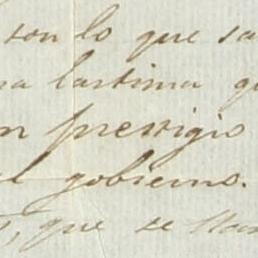 son lo que sa
na lastima q
n prestigio
el gobierno.
, que se llam